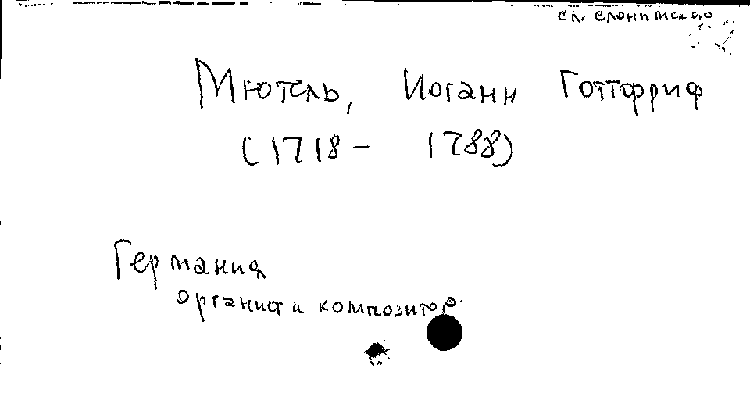 сл. Слонимского
Мютель, Иоганн Готтфрид
(1718 - 1788)
Германия
органист и композитор